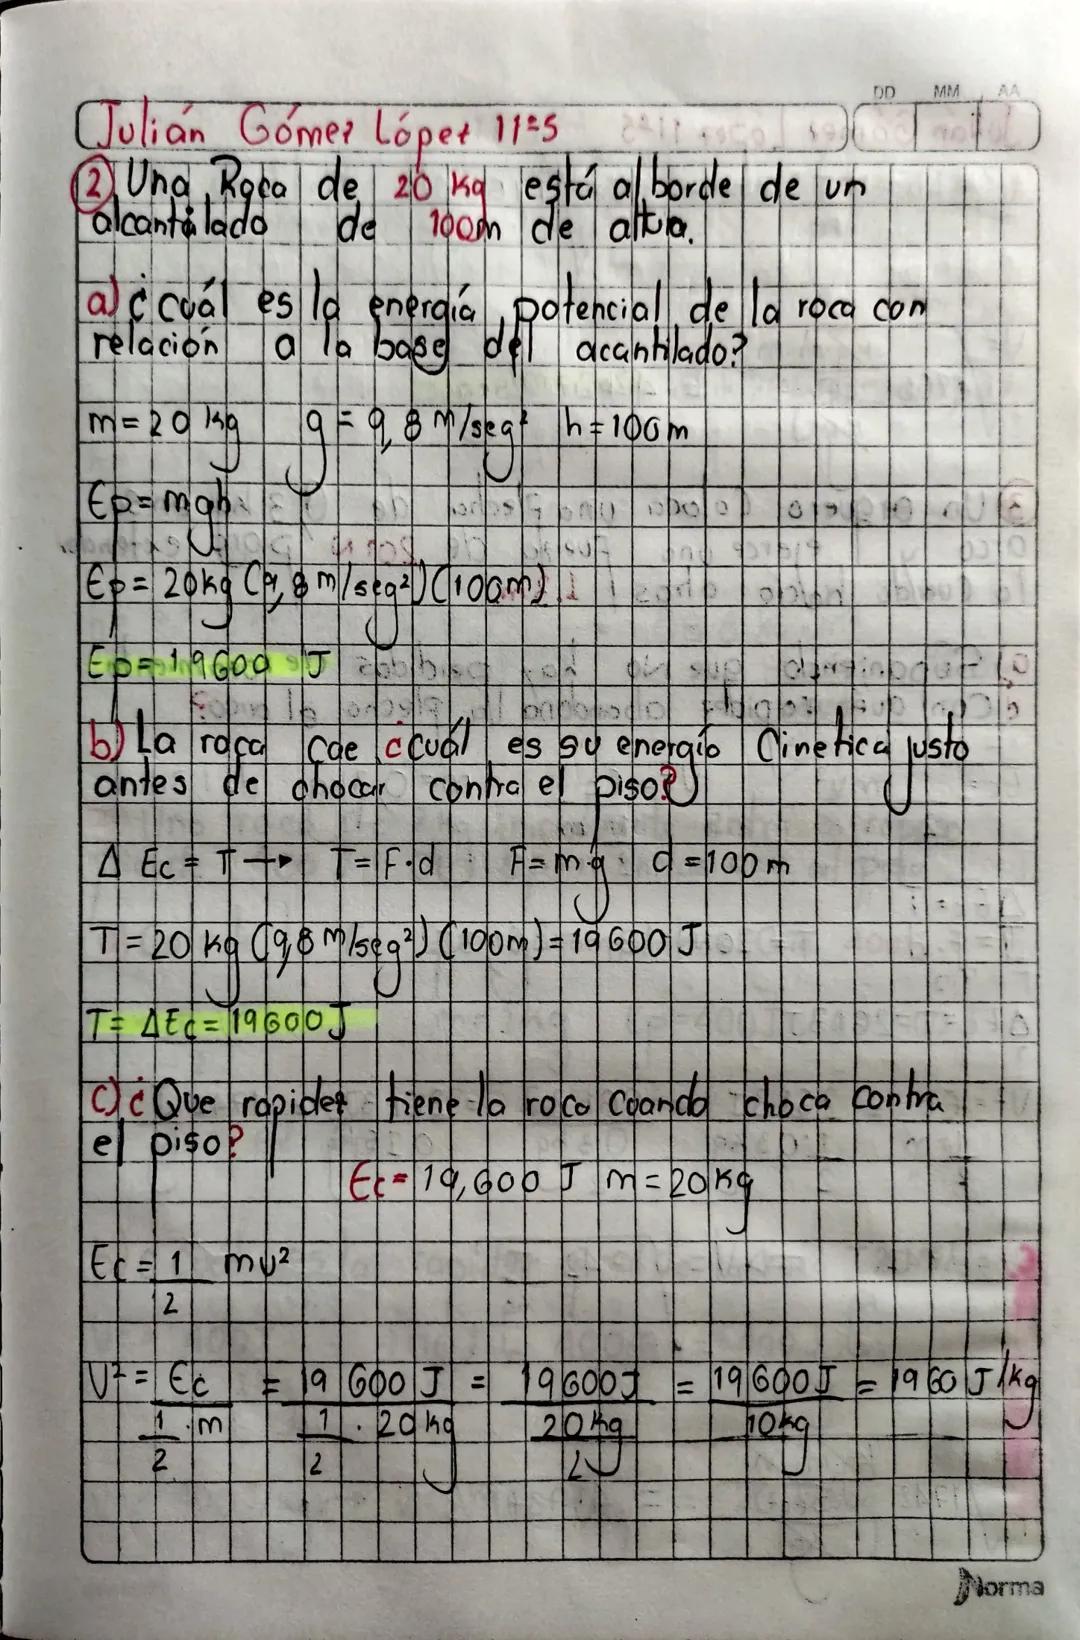 DD MM AA
Julián Gómez López 11°5
② Una Roca de 20 kg está al borde de un
alcantilado de 100m de altura.
a) ¿cuál es la energía potencial de la roca con
relación a la base del acantilado?
m = 20 kg g = 9,8 m/seg² h = 100m
Ep = mgh
Ep = 20kg (9,8 m/seg²) (100m)
Ep = 19600 J
b) La roca cae ¿cuál es su energía Cinetica justo
antes de chocar contra el piso?
Δ Ec = T → T = F·d F = m·g d = 100m
T = 20 kg (9,8 m/seg²) (100m) = 19600 J
T = ΔEc = 19600 J
c) ¿Que rapidez tiene la roca cuando choca contra
el piso?
Ec = 19,600 J m = 20kg
Ec = 1 mv²
2
V² = Ec = 19 600 J = 19600J = 19600J = 1960 J/kg
1 · m 1 · 20kg 20kg 10kg
2 2 2
Norma